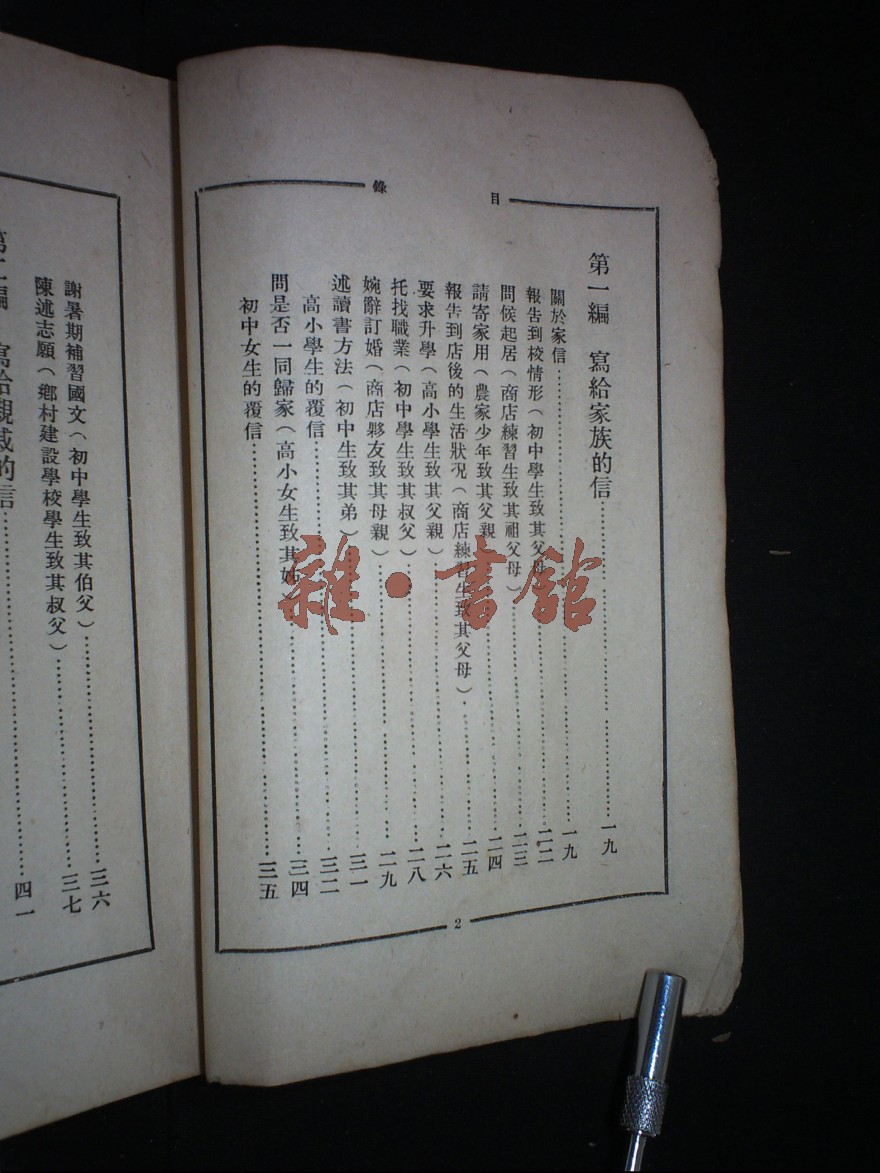 目錄
第一編 寫給家族的信……一九
關於家信……一九
報告到校情形(初中學生致其父母)……二二
問候起居(商店練習生致其祖父母)……二三
請寄家用(農家少年致其父親)……二四
報告到店後的生活狀况(商店練習生致其父母)……二五
要求升學(高小學生致其父親)……二六
托找職業(初中學生致其叔父)……二八
婉辭訂婚(商店夥友致其母親)……二九
述讀書方法(初中生致其弟)……三一
高小學生的覆信……三二
問是否一同歸家(高小女生致其姊)……三四
初中女生的覆信……三五
2
謝暑期補習國文(初中學生致其伯父)……三六
陳述志願(鄉村建設學校學生致其叔父)……三七
第二編 寫給親戚的信……四一
雜·書館